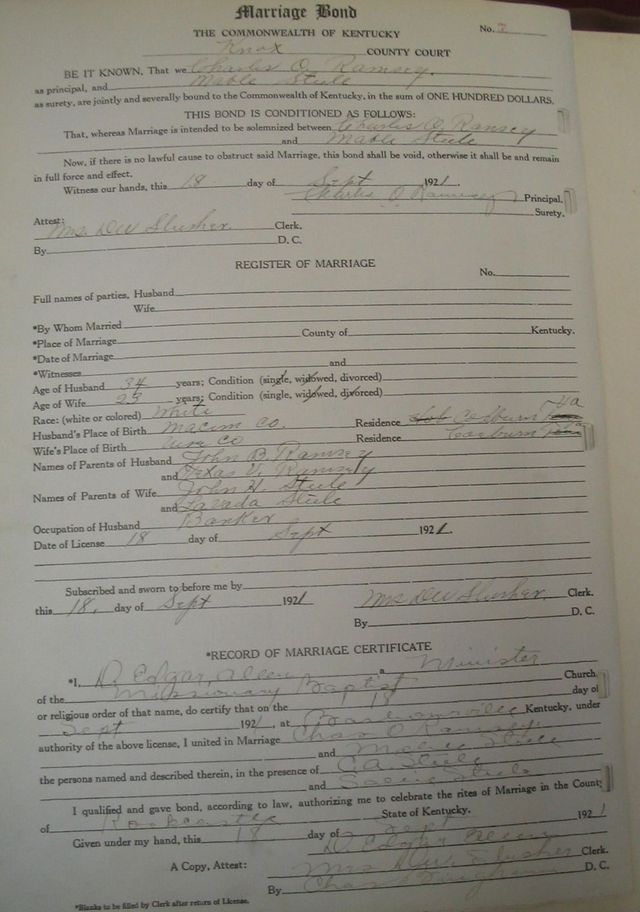 Marriage Bond
THE COMMONWEALTH OF KENTUCKY
No. 7
Knox COUNTY COURT
BE IT KNOWN, That we Charles O. Ramsey.
as principal, and Mable Steele
as surety, are jointly and severally bound to the Commonwealth of Kentucky, in the sum of ONE HUNDRED DOLLARS.
THIS BOND IS CONDITIONED AS FOLLOWS:
That, whereas Marriage is intended to be solemnized between Charles O. Ramsey
and Mable Steele
Now, if there is no lawful cause to obstruct said Marriage, this bond shall be void, otherwise it shall be and remain
in full force and effect.
Witness our hands, this 18 day of Sept 1921.
Charles O Ramsey Principal.
Surety.
Attest:
Mrs. DW Slusher. Clerk.
By D. C.
REGISTER OF MARRIAGE
No.
Full names of parties, Husband
Wife
*By Whom Married
*Place of Marriage County of Kentucky.
*Date of Marriage
*Witnesses and
Age of Husband 34 years; Condition (single, widowed, divorced)
Age of Wife 23 years; Condition (single, widowed, divorced)
Race: (white or colored) White
Husband's Place of Birth Co. Residence Va
Wife's Place of Birth Co Residence Coeburn
Names of Parents of Husband John B. Ramsey
and Texas V. Ramsey
Names of Parents of Wife John H. Steele
and Lavada Steele
Occupation of Husband Banker
Date of License 18 day of Sept 1921.
Subscribed and sworn to before me by
this 18, day of Sept 1921 Mrs DW Slusher. Clerk.
By D. C.
*RECORD OF MARRIAGE CERTIFICATE
*I, D. Edgar Allen a Minister
of the Missionary Baptist Church
or religious order of that name, do certify that on the 18 day of
Sept 1921, at Kentucky, under
authority of the above license, I united in Marriage Chas O Ramsey
and Mable Steele
the persons named and described therein, in the presence of C.A. Steele
and Steele
I qualified and gave bond, according to law, authorizing me to celebrate the rites of Marriage in the County
of Rockcastle State of Kentucky.
Given under my hand, this 18 day of Sept 1921
D. Edgar Allen
A Copy, Attest: Mrs DW Slusher Clerk.
By Chas Bingham D. C.
*Blanks to be filled by Clerk after return of License.